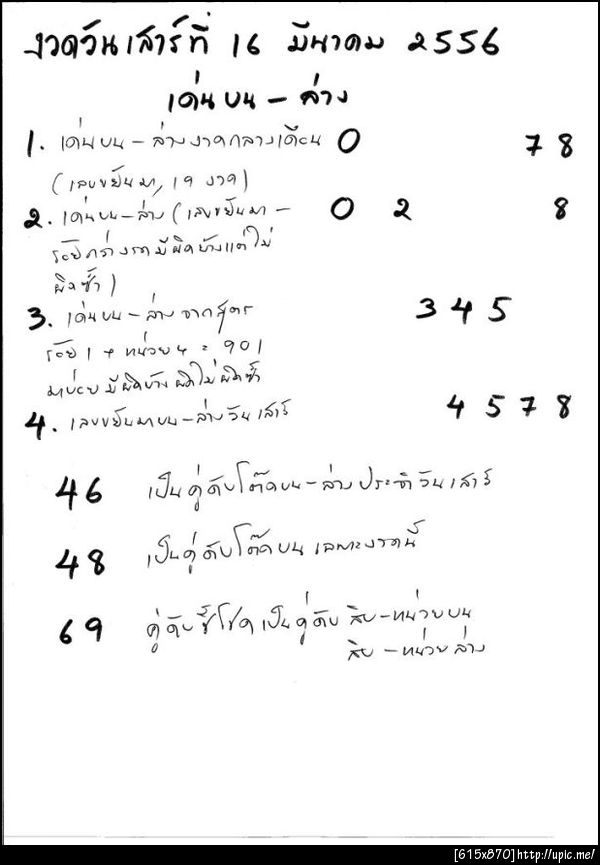 งวดวันเสาร์ที่ 16 มีนาคม 2556
เด่นบน - ล่าง
1. เด่นบน - ล่างงวดกลางเดือน 0 7 8
(เลขขยันมา, 19 งวด)
2. เด่นบน-ล่าง (เลขขยันมา - 0 2 8
มีผิดบ้างแต่ไม่
ผิดซ้ำ)
3. เด่นบน - ล่าง จากสูตร 3 4 5
ร้อย 1 + หน่วย 4 = 901
มาบ่อย มีผิดบ้าง ผิดไม่ผิดซ้ำ
4. เลขขยันมาบน-ล่าง วันเสาร์ 4 5 7 8
46 เป็นคู่ดับโต๊ดบน-ล่าง ประจำวันเสาร์
48 เป็นคู่ดับโต๊ดบน เฉพาะงวดนี้
69 คู่ดับชี้โชค เป็นคู่ดับ สิบ-หน่วยบน
สิบ - หน่วยล่าง
[615x870]http://upic.me/